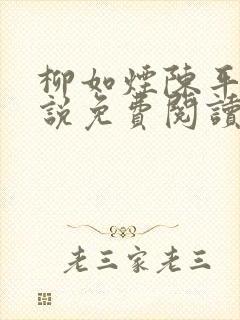 柳如煙陳平
說免費閱讀
老三家老三